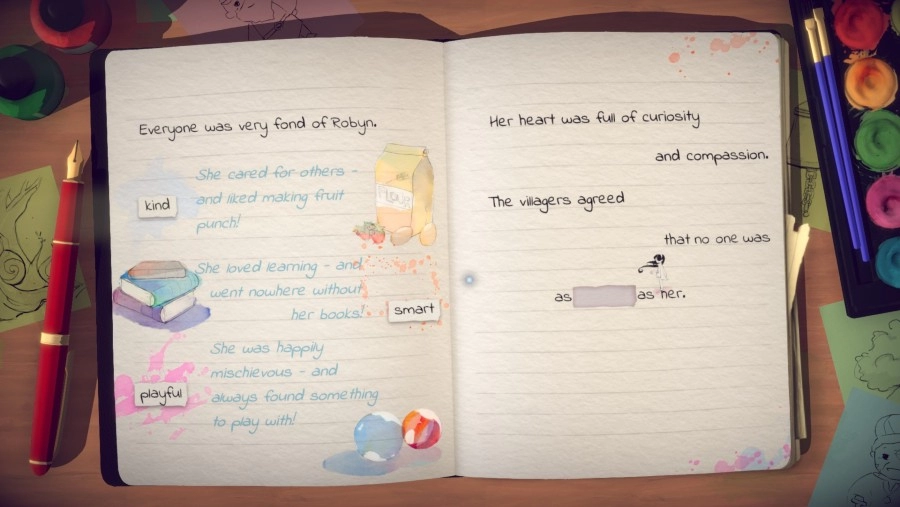 Everyone was very fond of Robyn.
kind
She cared for others -
and liked making fruit
punch!
Flour
She loved learning - and
went nowhere without
her books!
smart
She was happily
mischievous - and
always found something
to play with!
playful
Her heart was full of curiosity
and compassion.
The villagers agreed
that no one was
as as her.